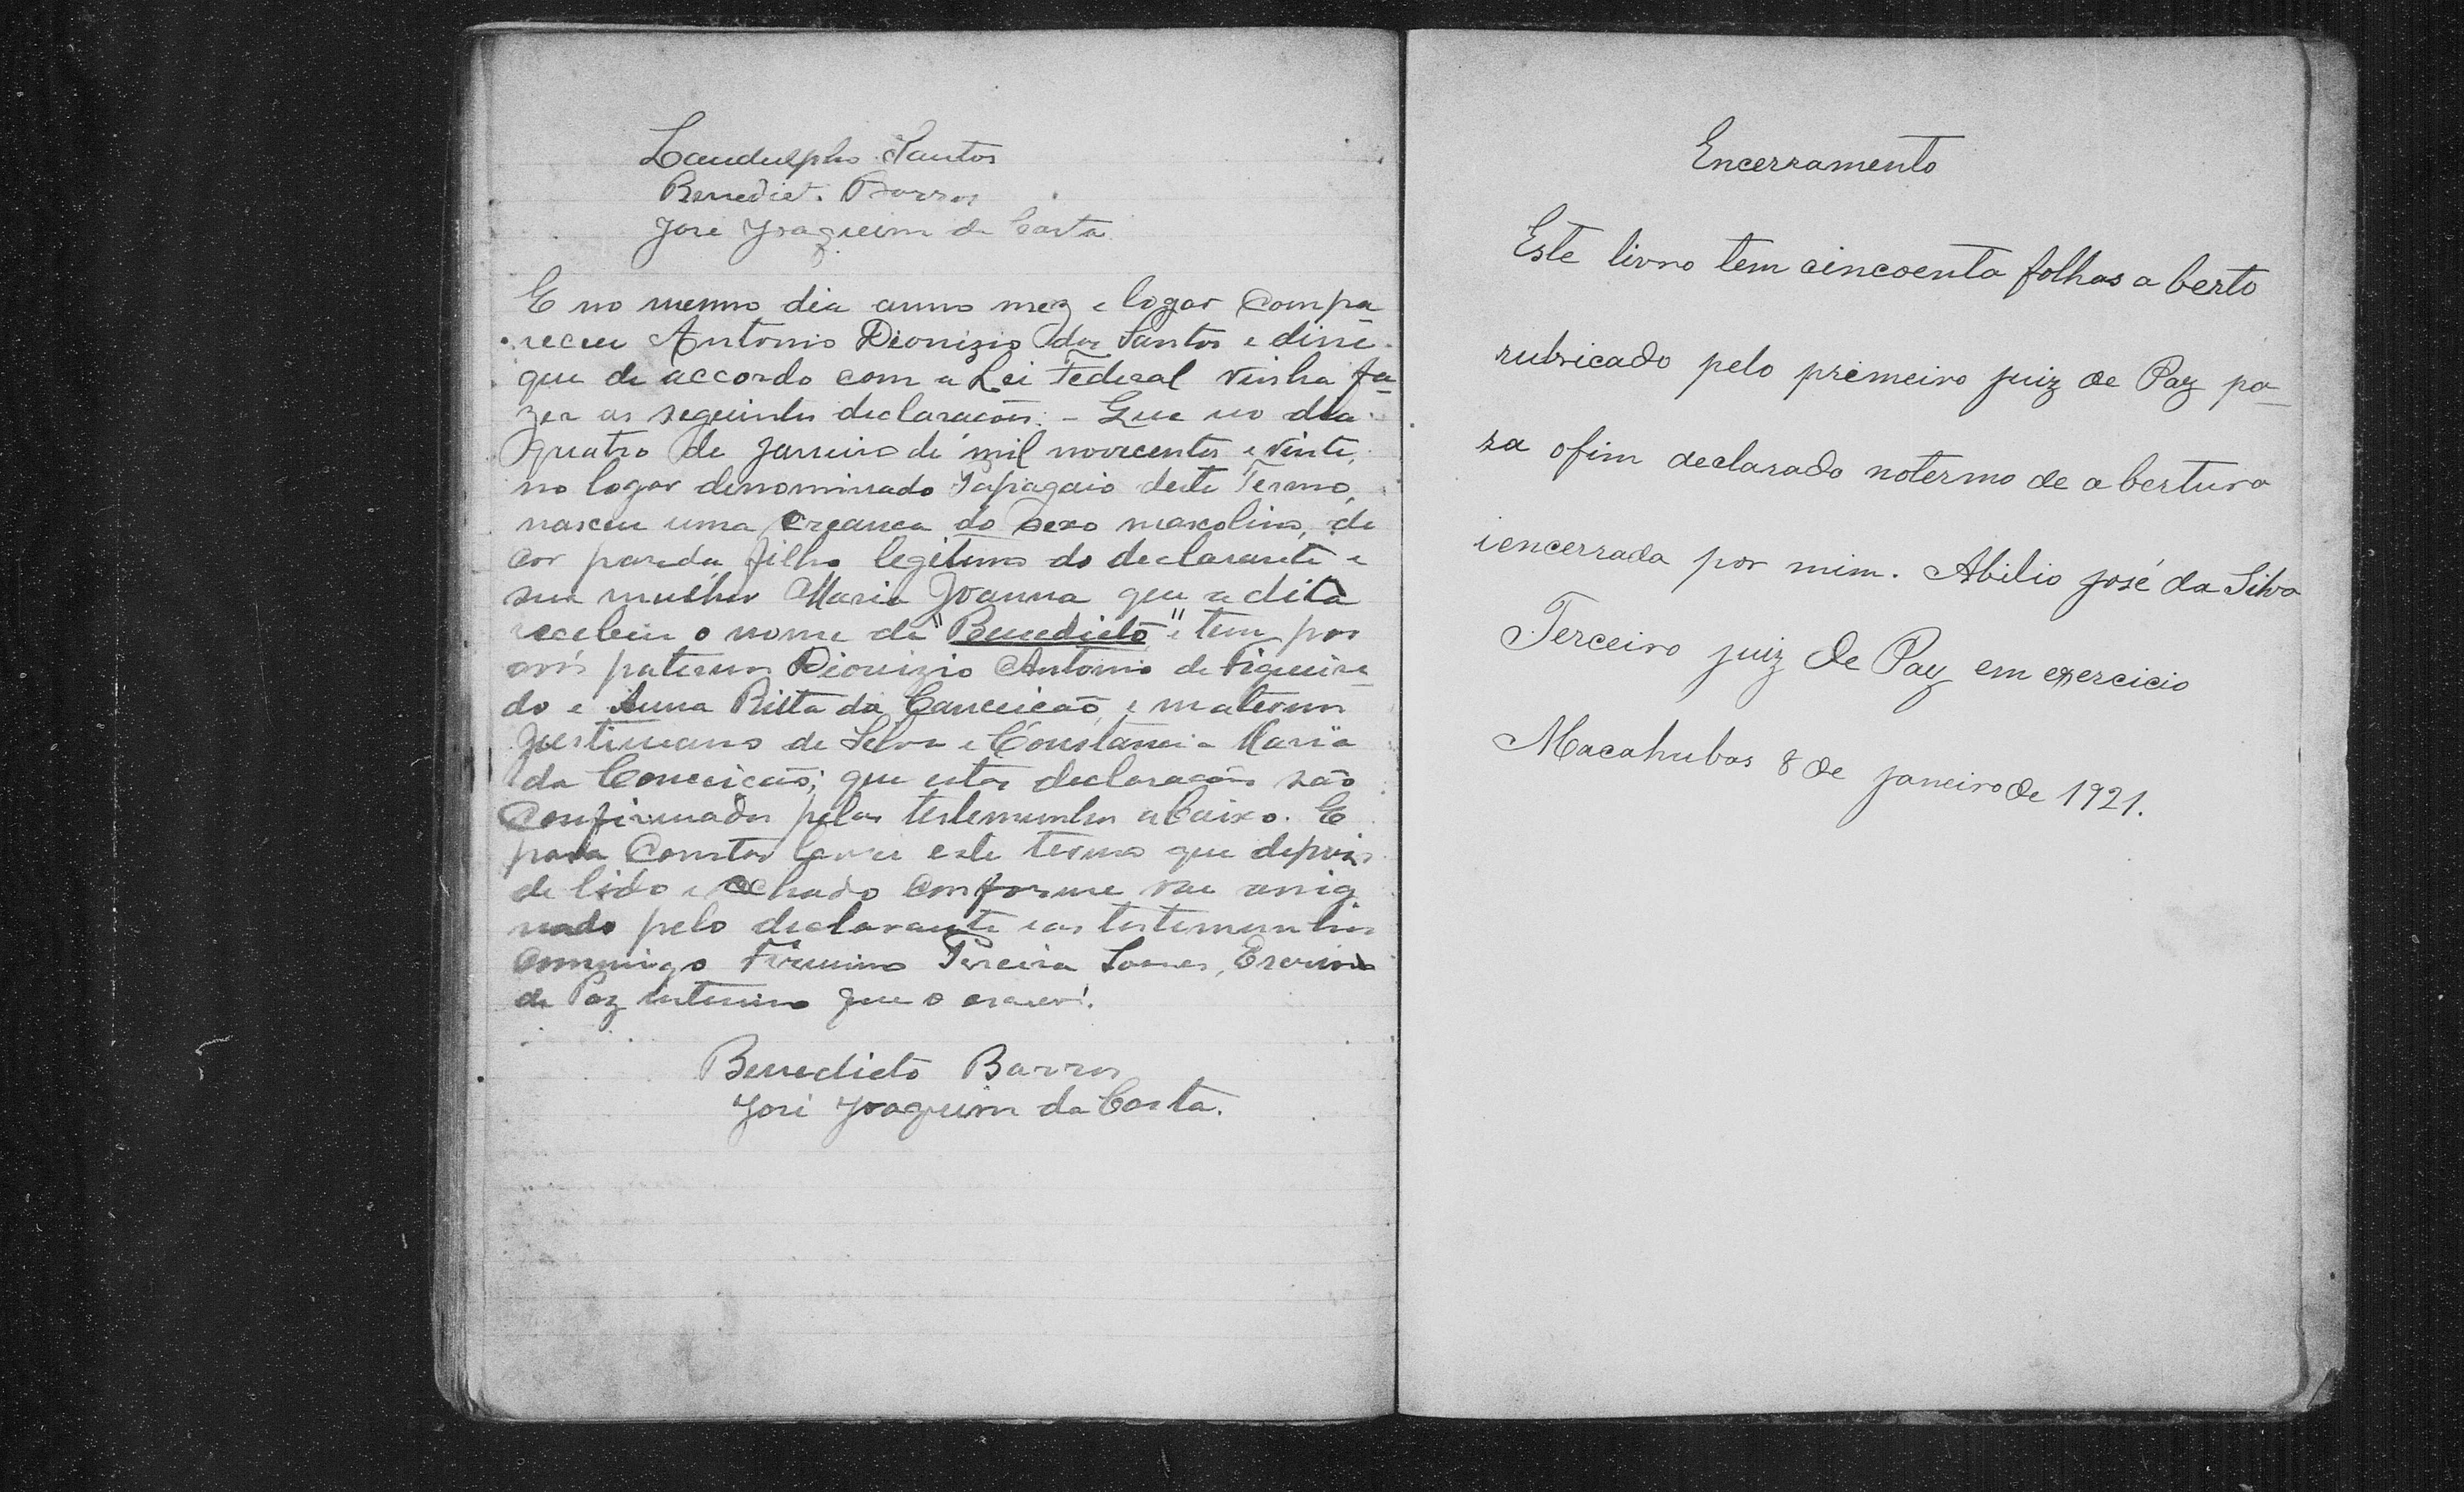 Laudulpho Santos
Benedict. Barros
José Joaquim da Costa
E no mesmo dia anno mez e logar compa
receu Antonio Dionizio dos Santos e disse
que de accordo com a Lei Federal vinha fa
zer as seguintes declaracões: - Que no dia
quatro de Janeiro de mil novecentos e vinte,
no logar denominado Papagaio deste Termo,
nasceu uma creanca do sexo mascolino, de
cor parda, filho legitimo do declarante e
sua mulher Maria Joanna que a dita
recebeu o nome de "Benedicto" e tem por
avós paternos Dionizio Antonio de Figueire
do e Anna Ritta da Conceicão, e maternos
Justiniano da Silva e Constancia Maria
da Conceicão; que estas declaracões são
confirmadas pelas testemunhas abaixo. E
para constar lavrei este termo que depois
de lido e achado conforme vae assig
nado pelo declarante e as testemunhas
commigo Firmino Pereira Escrivão
de Paz interino que o escrevi.
Benedicto Barros
José Joaquim da Costa.
Encerramento
Este livro tem cincoenta folhas a berto
rubricado pelo primeiro juiz de Paz pa-
ra ofim declarado notermo de a bertura
iencerrada por mim. Abilio José da Silva
Terceiro juiz de Paz em exercicio
Macahubas 8 de janeiro de 1921.